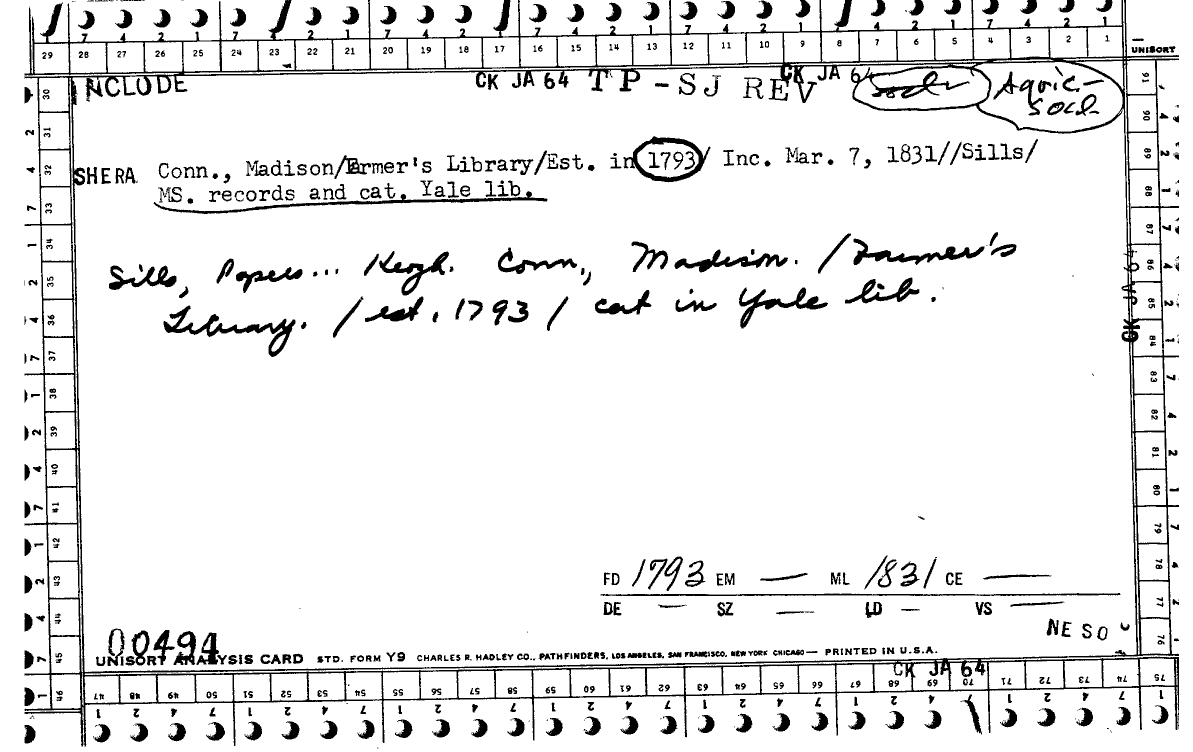 7 4 2 1 7 4 2 1 7 4 2 1 7 4 2 1 7 4 2 1 7 4 2 1 7 4 2 1
29 28 27 26 25 24 23 22 21 20 19 18 17 16 15 14 13 12 11 10 9 8 7 6 5 4 3 2 1 UNISORT
INCLUDE CK JA 64 TP-SJ REV CK JA 64 Socl Agric-
Socl
SHERA Conn., Madison/Farmer's Library/Est. in 1793/ Inc. Mar. 7, 1831//Sills/
MS. records and cat. Yale lib.
Sills, Papers... Keogh. Conn., Madison. /Farmer's
Library. /est. 1793/ cat in Yale lib.
CK JA 64
FD 1793 EM — ML 1831 CE —
DE — SZ — LD — VS —
NE SO
00494
UNISORT ANALYSIS CARD STD. FORM Y9 CHARLES R. HADLEY CO., PATHFINDERS, LOS ANGELES, SAN FRANCISCO, NEW YORK CHICAGO — PRINTED IN U.S.A.
CK JA 64
30 31 32 33 34 35 36 37 38 39 40 41 42 43 44 45 46
91 90 89 88 87 86 85 84 83 82 81 80 79 78 77 76
47 48 49 50 51 52 53 54 55 56 57 58 59 60 61 62 63 64 65 66 67 68 69 70 71 72 73 74 75
1 2 4 7 1 2 4 7 1 2 4 7 1 2 4 7 1 2 4 7 1 2 4 1 2 4 7 1